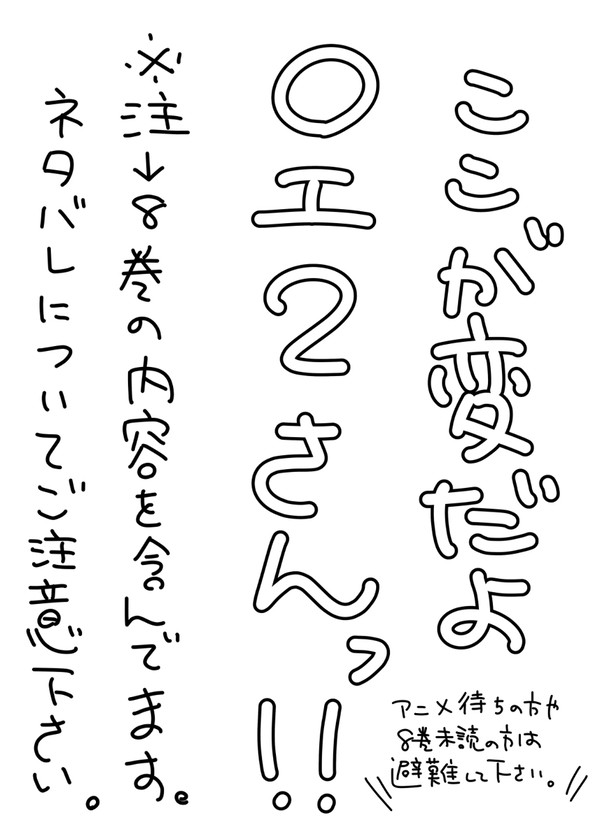 ここが変だよ
〇エ2さんっ!!
アニメ待ちの方や
8巻未読の方は
避難して下さい。
※注→8巻の内容を含んでます。
ネタバレについてご注意下さい。